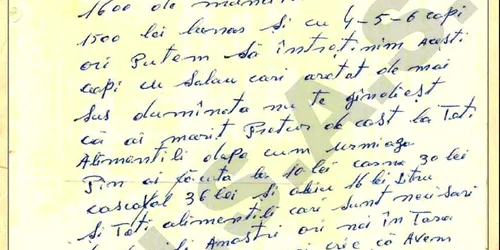 1600 de
1500 lei lunar și cu 4-5-6 copi
ori Putem să întrețınem acești
copi cu Salau cari aratat de mai
sus dumineta nu te gîndiest
că ai marit Prețur de cost la Toti
Alimentili dupo cum urmiaza
Pin ai făcuta la 10 lei carna 30 lei
cascaval 36 lei și uliu 16 lei Litru
și Toti alimentili cari sunt necisari
Noastri ori noi în Tara
că Avem